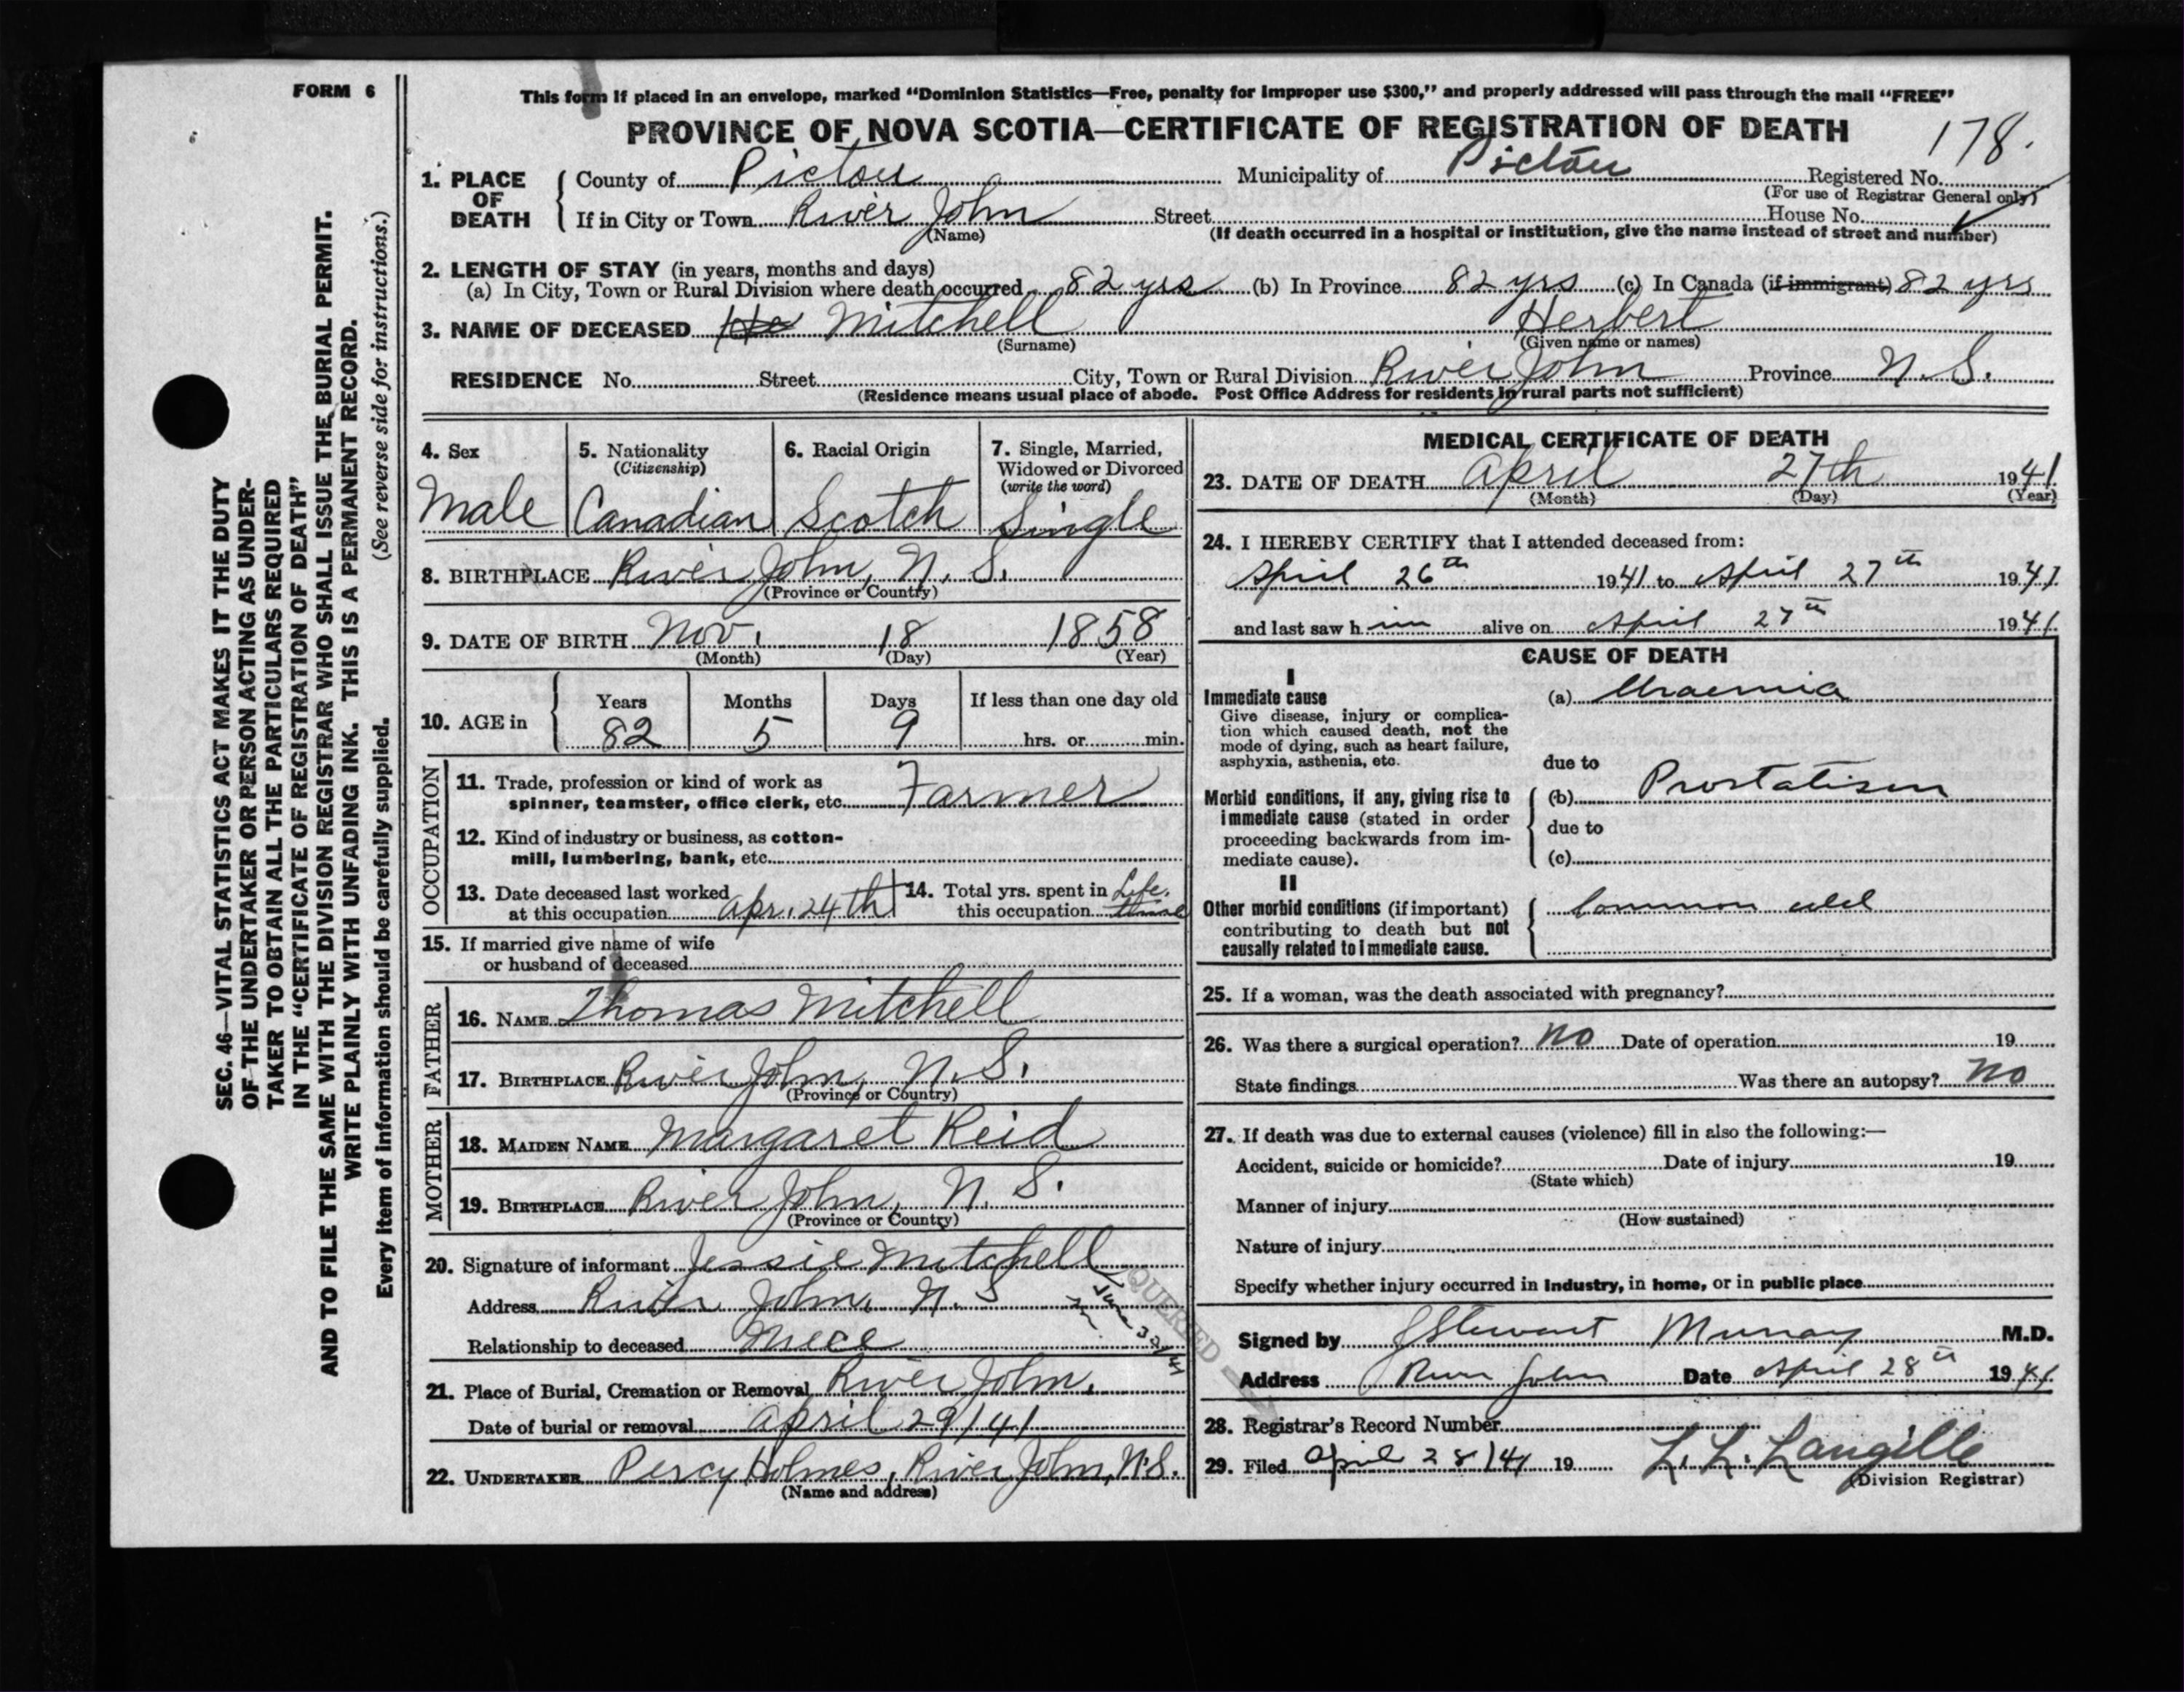 FORM 6
This form if placed in an envelope, marked “Dominion Statistics—Free, penalty for improper use $300,” and properly addressed will pass through the mail “FREE”
PROVINCE OF NOVA SCOTIA—CERTIFICATE OF REGISTRATION OF DEATH
178.
1. PLACE OF DEATH
County of Pictou Municipality of Pictou Registered No.
(For use of Registrar General only)
If in City or Town River John Street House No.
(Name) (If death occurred in a hospital or institution, give the name instead of street and number)
2. LENGTH OF STAY (in years, months and days)
(a) In City, Town or Rural Division where death occurred 82 yrs (b) In Province 82 yrs (c) In Canada (if immigrant) 82 yrs
3. NAME OF DECEASED He Mitchell Herbert
(Surname) (Given name or names)
RESIDENCE No. Street City, Town or Rural Division River John Province N. S.
(Residence means usual place of abode. Post Office Address for residents in rural parts not sufficient)
4. Sex
Male
5. Nationality
(Citizenship)
Canadian
6. Racial Origin
Scotch
7. Single, Married,
Widowed or Divorced
(write the word)
Single
8. BIRTHPLACE River John, N. S.
(Province or Country)
9. DATE OF BIRTH Nov. 18 1858
(Month) (Day) (Year)
10. AGE in
Years Months Days If less than one day old
82 5 9 hrs. or min.
OCCUPATION
11. Trade, profession or kind of work as
spinner, teamster, office clerk, etc. Farmer
12. Kind of industry or business, as cotton-
mill, lumbering, bank, etc.
13. Date deceased last worked
at this occupation Apr. 24th
14. Total yrs. spent in Life
this occupation
15. If married give name of wife
or husband of deceased
FATHER
16. NAME Thomas Mitchell
17. BIRTHPLACE River John, N. S.
(Province or Country)
MOTHER
18. MAIDEN NAME Margaret Reid
19. BIRTHPLACE River John, N. S.
(Province or Country)
20. Signature of informant Jessie Mitchell
Address River John, N. S
Relationship to deceased Niece
QUERIED
21. Place of Burial, Cremation or Removal River John.
Date of burial or removal April 29/41
22. UNDERTAKER Percy Holmes, River John, N.S.
(Name and address)
MEDICAL CERTIFICATE OF DEATH
23. DATE OF DEATH April 27th 1941
(Month) (Day) (Year)
24. I HEREBY CERTIFY that I attended deceased from:
April 26th 1941 to April 27th 1941
and last saw him alive on April 27th 1941
CAUSE OF DEATH
I
Immediate cause
Give disease, injury or complica-
tion which caused death, not the
mode of dying, such as heart failure,
asphyxia, asthenia, etc.
(a) Uraemia
due to
Morbid conditions, if any, giving rise to
immediate cause (stated in order
proceeding backwards from im-
mediate cause).
(b) Prostatism
due to
(c)
II
Other morbid conditions (if important)
contributing to death but not
causally related to immediate cause.
Common cold
25. If a woman, was the death associated with pregnancy?
26. Was there a surgical operation? No Date of operation 19
State findings Was there an autopsy? No
27. If death was due to external causes (violence) fill in also the following:—
Accident, suicide or homicide? Date of injury 19
(State which)
Manner of injury
(How sustained)
Nature of injury
Specify whether injury occurred in industry, in home, or in public place
Signed by J Stewart Murray M.D.
Address River John Date April 28th 1941
28. Registrar's Record Number
29. Filed April 28/41 19 L. L. Langille
(Division Registrar)
SEC. 46—VITAL STATISTICS ACT MAKES IT THE DUTY
OF THE UNDERTAKER OR PERSON ACTING AS UNDER-
TAKER TO OBTAIN ALL THE PARTICULARS REQUIRED
IN THE “CERTIFICATE OF REGISTRATION OF DEATH”
AND TO FILE THE SAME WITH THE DIVISION REGISTRAR WHO SHALL ISSUE THE BURIAL PERMIT.
WRITE PLAINLY WITH UNFADING INK. THIS IS A PERMANENT RECORD.
(See reverse side for instructions.)
Every item of information should be carefully supplied.